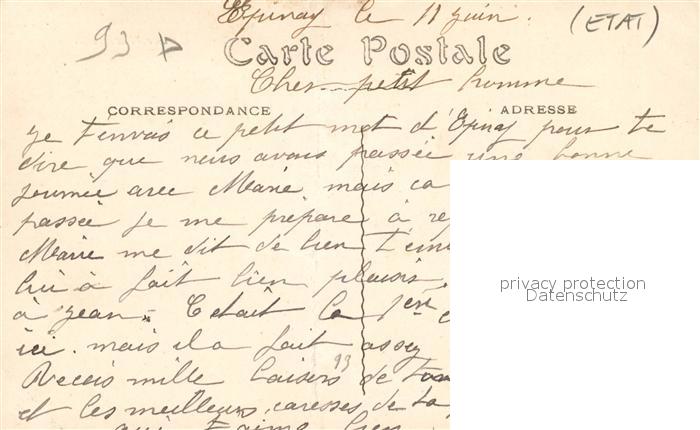 Epinay le 11 juin.
(ETAT)
93
Carte Postale
Cher petit homme
CORRESPONDANCE
ADRESSE
Je t'envois ce petit mot d'Epinay pour te
dire que nous avons passée une bonne
journée avec Marie mais ca
passée je me prépare à re
Marie me dit de bien t'em
lui à fait bien plaisir.
à Jean. C'etait la 1ere
ici. mais il a fait assez
93
Recois mille baisers de ton
et les meilleurs caresses de ta
qui t'aime bien
privacy protection
Datenschutz